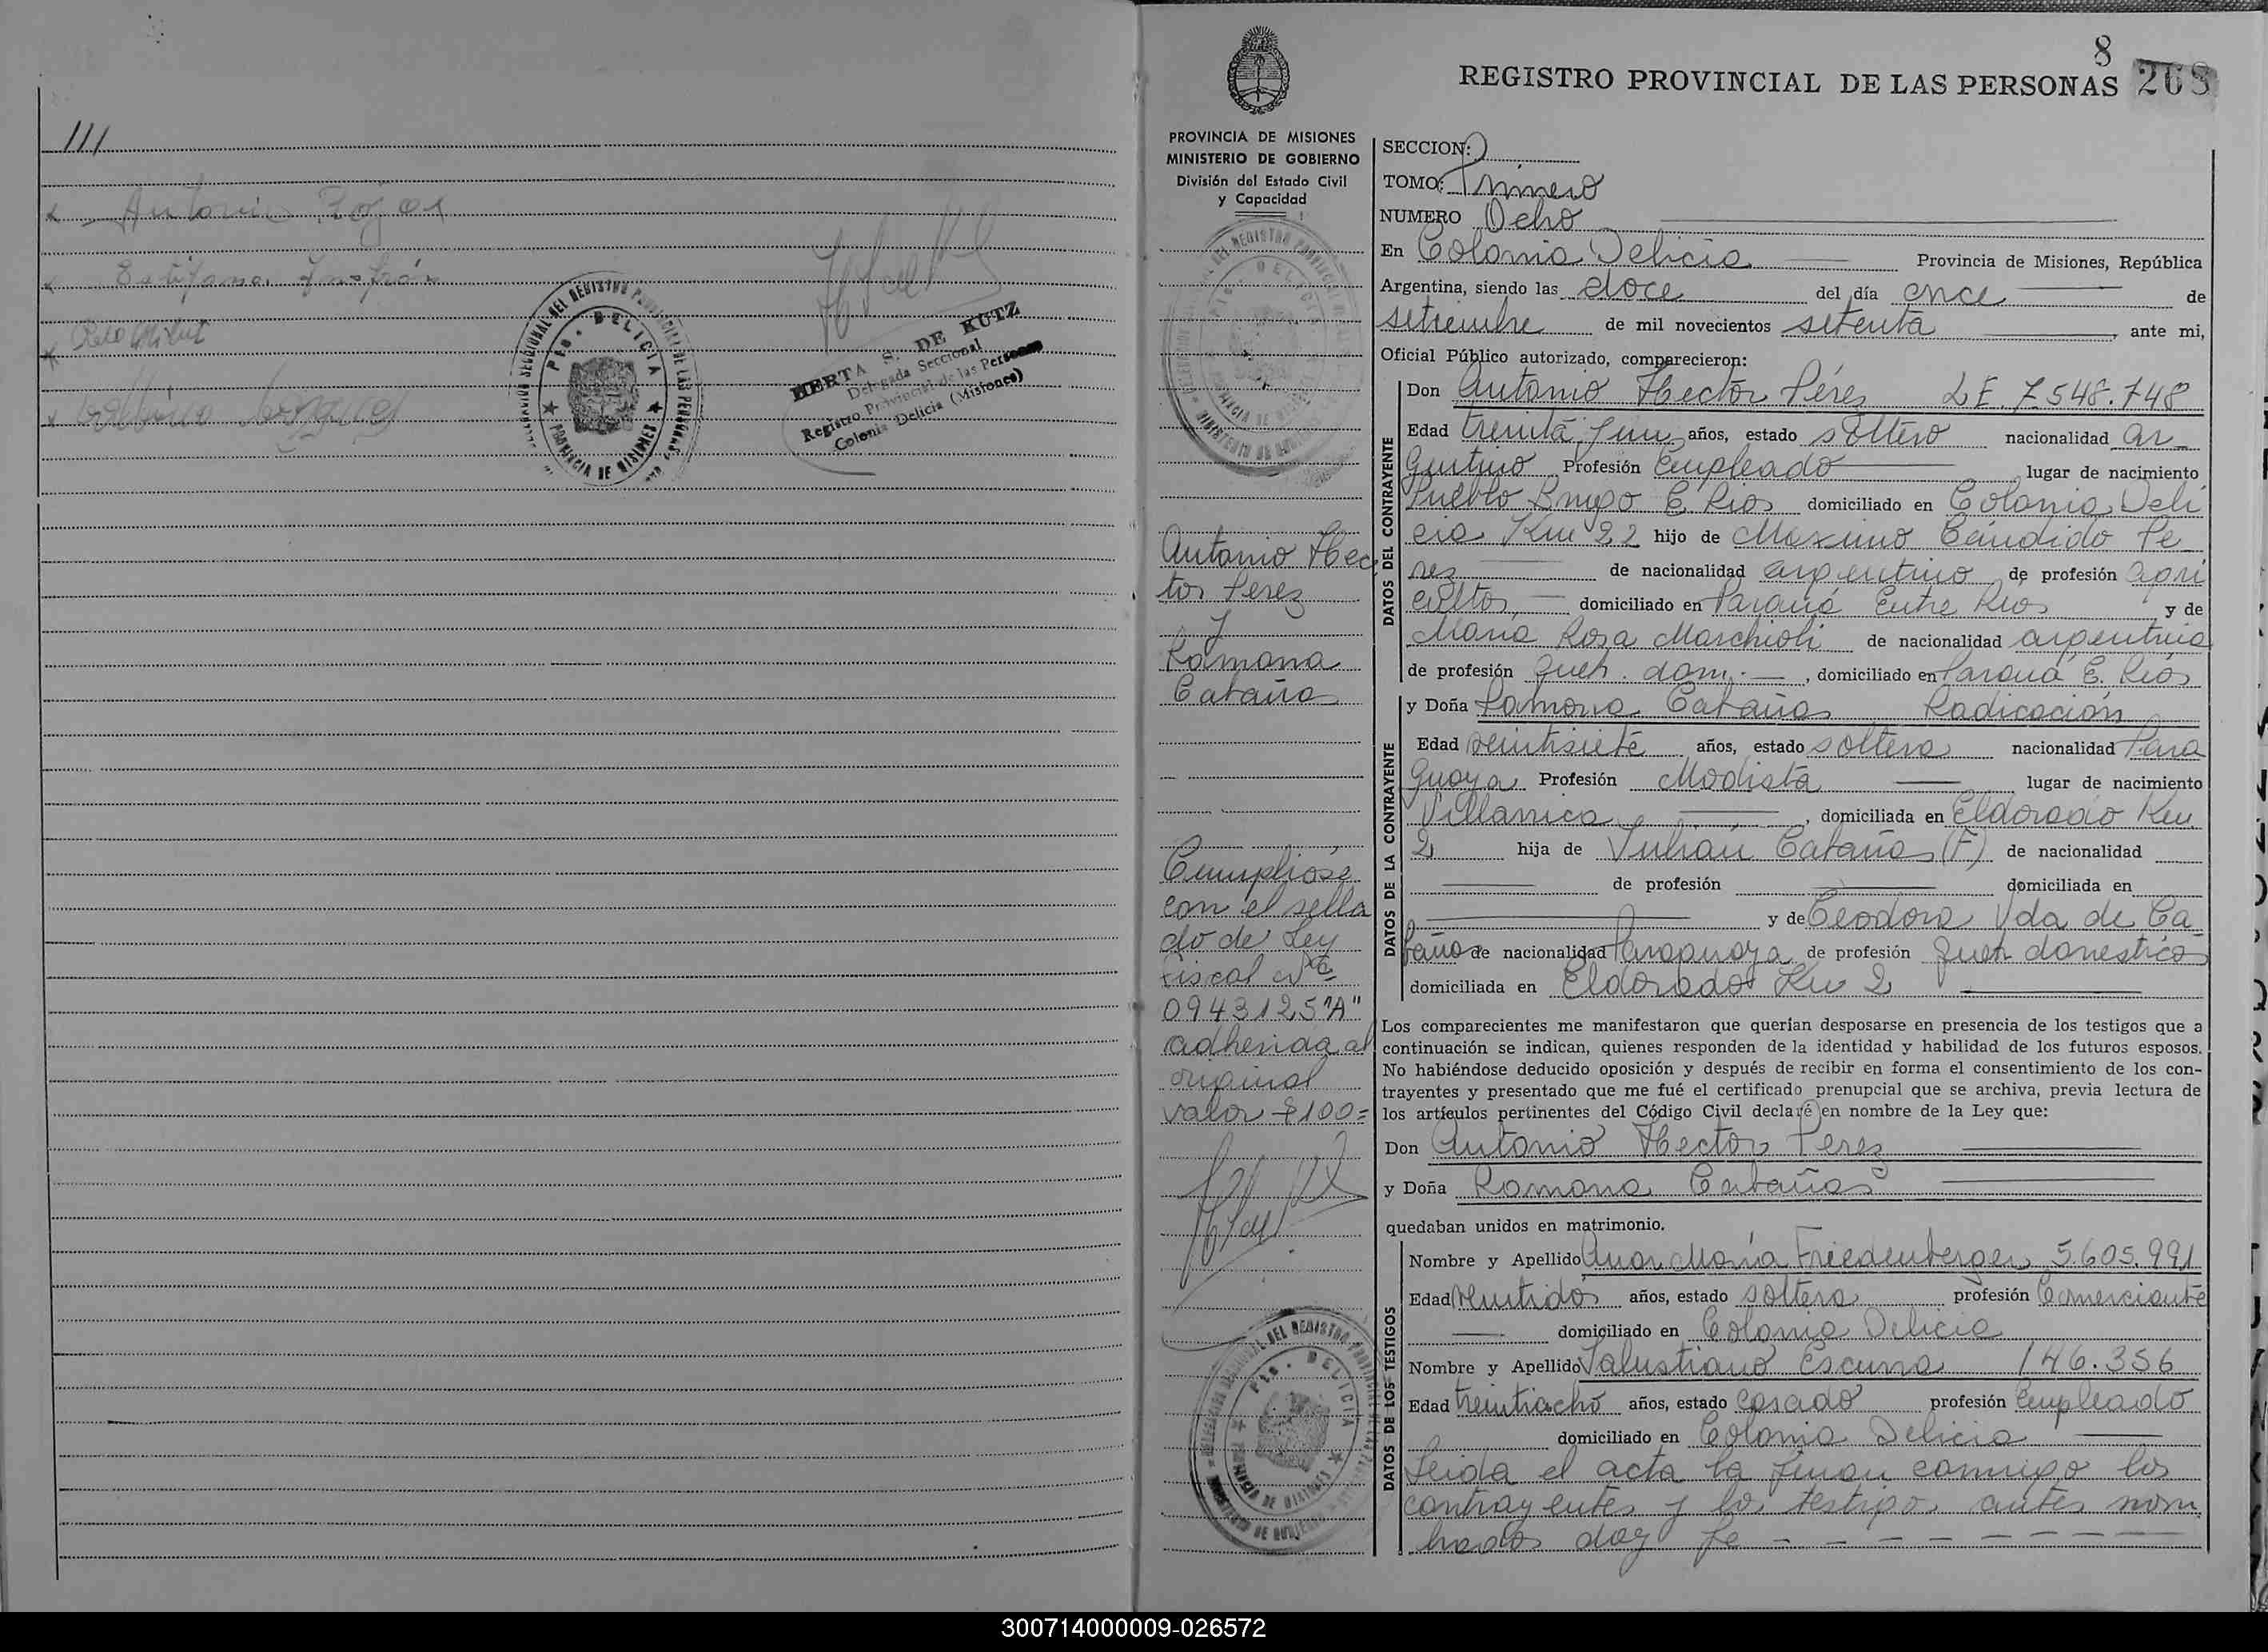 ///
Antonio Rojas
HERTA S. DE KUTZ
Delegada Seccional
Registro Provincial de las Personas
Colonia Delicia (Misiones)
DELICIA
PROVINCIA DE MISIONES
8
REGISTRO PROVINCIAL DE LAS PERSONAS 268
PROVINCIA DE MISIONES
MINISTERIO DE GOBIERNO
División del Estado Civil
y Capacidad
Antonio Hec
tor Perez
y
Ramona
Cabañas
Cumpliose
con el sella
do de Ley
fiscal
0943125"A"
adherida al
original
valor $100=
SECCION:
TOMO: Primero
NUMERO Ocho
En Colonia Delicia Provincia de Misiones, República
Argentina, siendo las doce del día once de
setiembre de mil novecientos setenta, ante mi,
Oficial Público autorizado, comparecieron:
DATOS DEL CONTRAYENTE
Don Antonio Hector Pérez LE. 7.548.748
Edad treinta y un años, estado soltero nacionalidad ar
gentino Profesión Empleado lugar de nacimiento
Pueblo Brugo E. Rios domiciliado en Colonia Deli
cia Km 22 hijo de Maximo Cándido Pe
rez de nacionalidad argentino de profesión agri
cultor, domiciliado en Paraná Entre Rios y de
María Rosa Marchioli de nacionalidad argentina
de profesión queh. dom. , domiciliado en Paraná E. Ríos
DATOS DE LA CONTRAYENTE
y Doña Ramona Cabañas Radicación
Edad veintisiete años, estado soltera nacionalidad Para
guaya Profesión Modista lugar de nacimiento
Villarrica , domiciliada en Eldorado Km
2 hija de Julián Cabañas (F.) de nacionalidad
de profesión domiciliada en
y de Teodora Vda de Ca
bañas de nacionalidad Paraguaya de profesión Queh domésticos
domiciliada en Eldorado Km 2
Los comparecientes me manifestaron que querían desposarse en presencia de los testigos que a
continuación se indican, quienes responden de la identidad y habilidad de los futuros esposos.
No habiéndose deducido oposición y después de recibir en forma el consentimiento de los con-
trayentes y presentado que me fué el certificado prenupcial que se archiva, previa lectura de
los artículos pertinentes del Código Civil declaré en nombre de la Ley que:
Don Antonio Hector Perez
y Doña Ramona Cabañas
quedaban unidos en matrimonio.
DATOS DE LOS TESTIGOS
Nombre y Apellido Ana María Friedenberger 5.605.991
Edad veintidos años, estado soltera profesión Comerciante
domiciliado en Colonia Delicia
Nombre y Apellido Salustiano Escurra 146.356
Edad treintiocho años, estado casado profesión Empleado
domiciliado en Colonia Delicia
Leida el acta la firman conmigo los
contrayentes y los testigos antes nom
brados doy fe
300714000009-026572